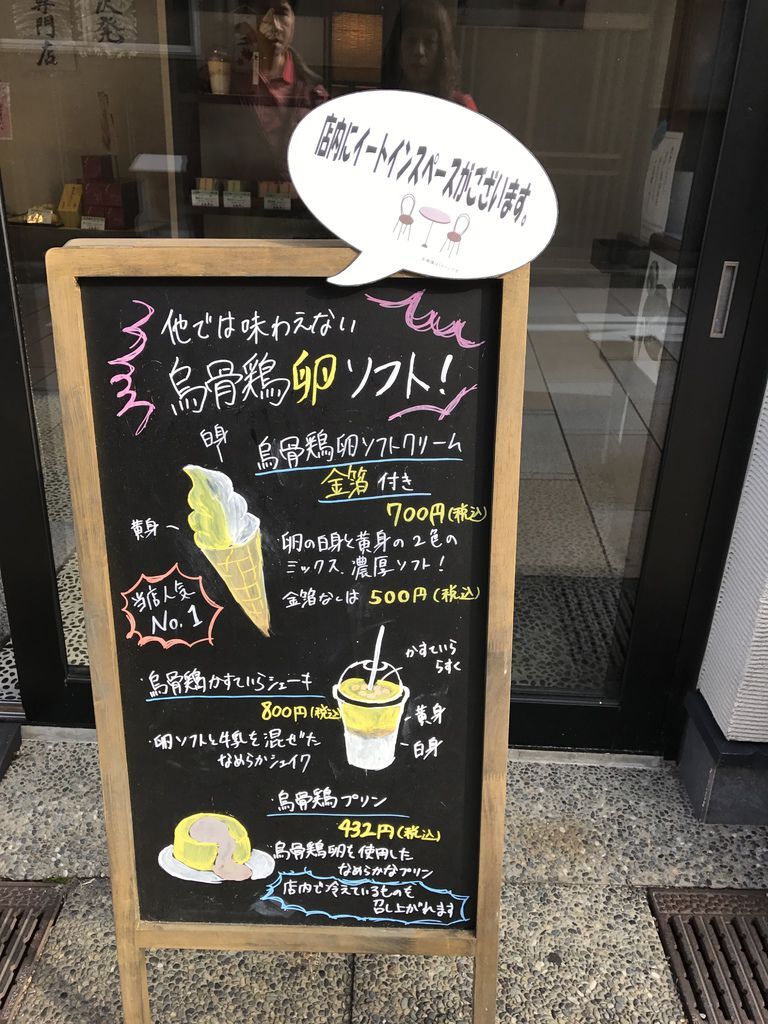 専門店
店内にイートインスペースがございます。
他では味わえない
烏骨鶏卵ソフト!
白身
烏骨鶏卵ソフトクリーム
金箔付き
700円(税込)
黄身
卵の白身と黄身の2色の
ミックス、濃厚ソフト!
金箔なしは 500円(税込)
当店人気
No.1
かすていら
らすく
烏骨鶏かすていらシェーキ
800円(税込)
黄身
白身
卵ソフトと牛乳を混ぜた
なめらかシェイク
烏骨鶏プリン
432円(税込)
烏骨鶏卵を使用した
なめらかなプリン
店内で冷えているものを
召し上がれます